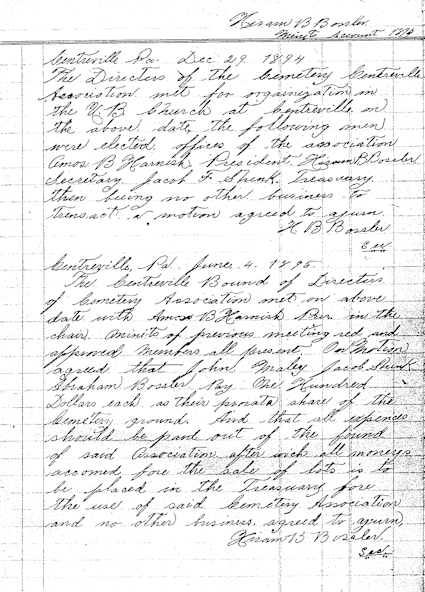 Hiram B Bossler
Minute Account 1894
Centreville Pa. Dec 29. 1894
The Directors of the Cemetery Centreville
Association met for orgainization in
the U.B. Church at Centreville on
the above date the following men
were elected offices of the association
Amos B Harnish President, Hiram B Bossler
Secretary Jacob F. Shenk Treasuary
then being no other business to
transact. a motion agreed to ajurn
H B Bossler
Sec
Centreville, Pa June. 4. 1895.
The Centreville Bound of Directers
of Cemetery Association met on above
date with Amos B Harnish Pres. in the
chair. minits of previous meeting red and
approved Members all present On Motion
agreed that John Maley Jacob Shenk
Abraham Bossler. Pay One Hundred
Dollars each as their prorata share of the
Cemetery ground. And that all expences
should be paid out of the found
of said Association after wich all moneys
accomed fore the sale of lots is to
be placed in the Treasuary fore
the use of said Cemetery Association
and no other business. agreed to ajurn,
Hiram B Bossler.
Sec.